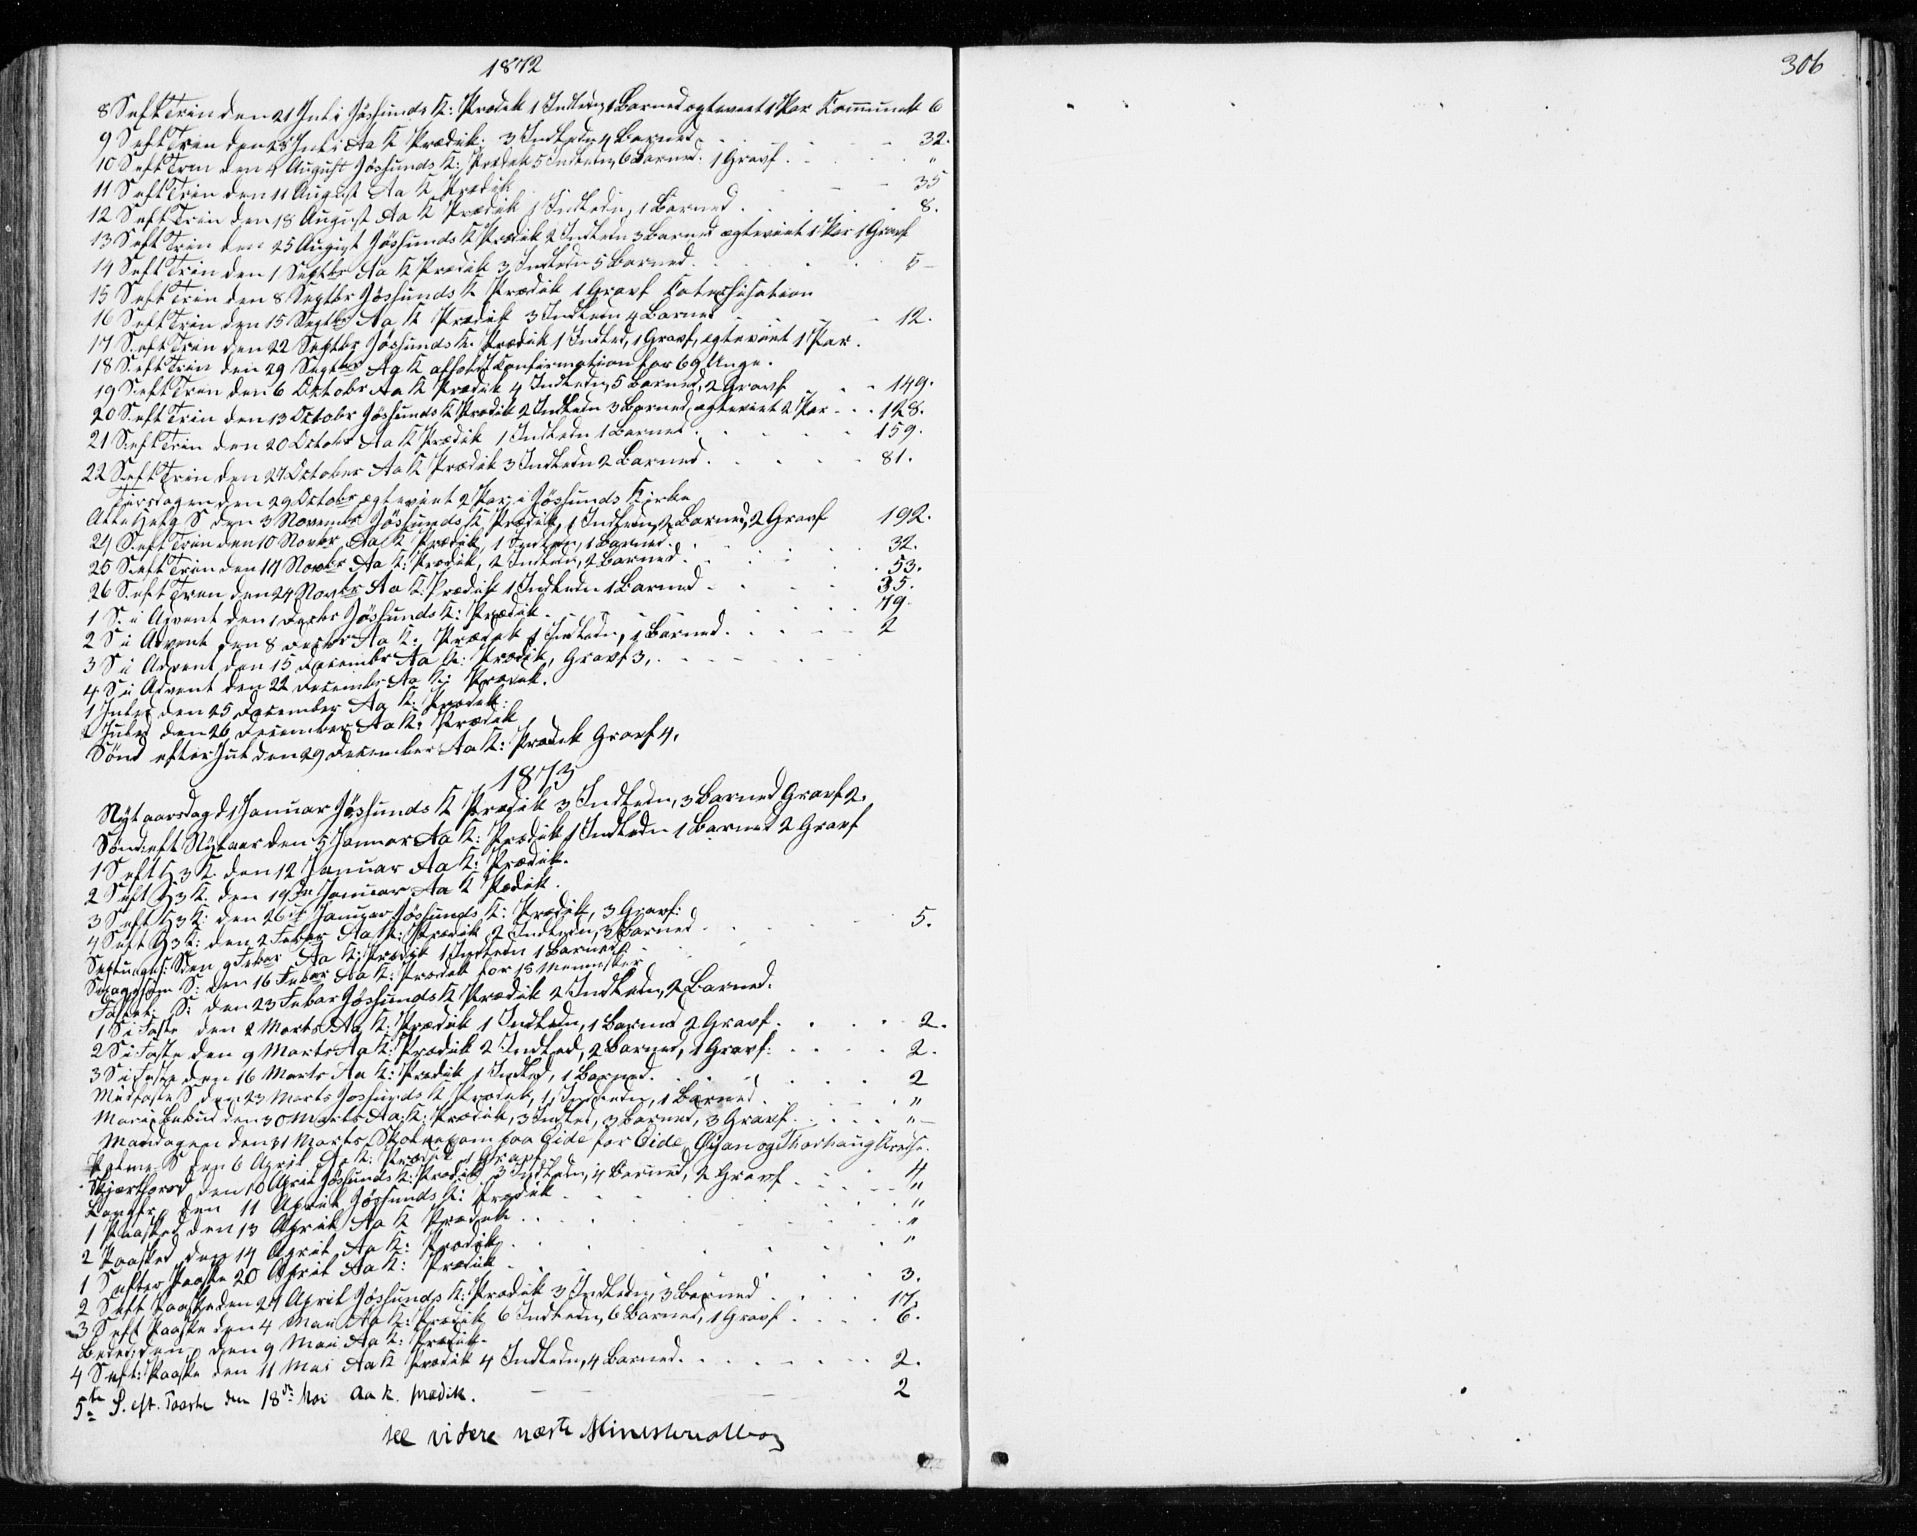 306
1872
8 S eft Trin den 21 Juli Jössunds K: Prædik 1 Indledn, 1 Barned ægteviet 1 Par Communik 6
9 S eft Trin den 28 Juli Aa K Prædik: 3 Indledn, 4 Barned 32.
10 S eft Trin den 4 August Jössunds K: Prædik 5 Indledn, 6 Barned. 1 Gravf. "
11 S eft Trin den 11 August Aa K Prædik 35
12 S eft Trin den 18 August Aa K Prædik 1 Indledn, 1 Barned 8.
13 S eft Trin den 25 August Jössunds K Prædik 2 Indledn 3 Barned ægteviet 1 Par 1 Gravf
14 S eft Trin den 1 Septbr Aa K Prædik 3 Indledn 5 Barned 5
15 S eft Trin den 8 Septbr Jössunds K Prædik 1 Gravf Catechisation
16 S eft Trin den 15 Septbr Aa K Prædik 3 Indledn 4 Barned 12.
17 S. eft Trin den 22 Septbr Jössunds K. Prædik 1 Indled, 1 Gravf, ægteviet 1 Par.
18 S. eft Trin den 29 Septbr Aa K afholdt Konfirmation for 69 Unge.
19 S. eft Trin den 6 Octobr Aa K Prædik 4 Indledn, 5 Barned, 2 Gravf 149.
20 S. eft Trin den 13 Octobr Jössunds K Prædik 2 Indledn 3 Barned, ægteviet 2 Par 128.
21 S. eft Trin den 20 Octobr Aa K Prædik 1 Indledn 1 Barned 159.
22 S. eft Trin den 27 October Aa K Prædik 3 Indledn 2 Barned. 81.
Tirsdagen den 29 Octobr ægteviet 2 Par i Jössunds Kirke
Alle Helg S den 3 Novembr Jössunds K Prædik, 1 Indledn, 2 Barned, 2 Gravf 192.
24 S. eft Trin den 10 Novbr Aa K Prædik, 1 Indledn, 1 Barned. 32.
25 S. eft Trin den 17 Novbr Aa K: Prædik, 2 Indledn, 2 Barned 53.
26 S. eft Trin den 24 Novbr Aa K: Prædik 1 Indledn 1 Barned 35.
1 S. i Advent den 1 Decbr Jössunds K: Prædik. 79.
2 S i Advent den 8 Decbr Aa K: Prædik 1 Indledn, 1 Barned. 2
3 S i Advent den 15 Decembr Aa K: Prædik, Gravf 3,
4 S i Advent den 22 Decembr Aa K: Prædik.
1 Juled den 25 December Aa K: Prædik:
2 Juled den 26 December Aa K: Prædik
Sönd efter Jul den 29 December Aa K: Prædik Gravf 4,
1873
Nytaarsdag d 1 Januar Jössunds K Prædik 3 Indledn, 3 Barned Gravf 2.
Sönd: eft Nytaar den 5 Januar Aa K: Prædik 1 Indledn 1 Barned 2 Gravf
1 S eft H 3 K. den 12 Januar Aa K: Prædik.
2 S eft H 3 K. den 19de Januar Aa K Prædik.
3 S eft H 3 K: den 26de Januar Jössunds K: Prædik, 3 Gravf:
4 S eft H 3 K: den 2 Febr Aa K: Prædik 2 Indledn, 3 Barned 5.
Septuages: S den 9 Febr Aa K: Prædik 1 Indledn 1 Barned
Sexagesim S: den 16 Febr Aa K: Prædik for 18 Mennesker
Fastel: S: den 23 Febar Jössunds K Prædik 2 Indledn, 2 Barned.
1 S i Faste den 2 Marts Aa K: Prædik 1 Indledn, 1 Barned 2 Gravf. 2.
2 S i Faste den 9 Marts Aa K: Prædik 2 Indled, 2 Barned, 1 Gravf: 2.
3 S i Faste den 16 Marts Aa K: Prædik 1 Indled, 1 Barned. 2
Midfaste S den 23 Marts Jössunds K Prædik, 1 Indledn, 1 Barned "
Mariæ Bebud den 30 Marts Aa: K: Prædik, 3 Indled, 3 Barned, 3 Gravf. "
Mandagen den 31 Marts, Skoleexam paa Eide for Eide, Öyan og Thorhaug Kredse.
Palme S den 6 April Aa K: Prædik 1 Gravf
Skjærthorsd den 10 April Jössunds K: Prædik 3 Indledn, 4 Barned, 2 Gravf 4
Langfr. den 11 April Jössunds K: Prædik "
1 Paasked den 13 April Aa K Prædik "
2 Paasked den 14 April Aa K: Prædik "
1 S efter Paaske 20 April Aa K: Prædik
2 S eft Paaske den 27 April Jössunds K: Prædik 3 Indledn, 3 Barned 3.
3 S eft Paaske den 4 Mai Aa K: Prædik 6 Indledn, 6 Barned, 1 Gravf 17.
Bededen den 9 Mai Aa K: Prædik. 6.
4 S eft: Paaske den 11 Mai Aa K Prædik 4 Indledn, 4 Barned. 2.
5te S. eft. Paaske den 18de Mai Aa K. prædik. 2
see videre næste Ministerialbog